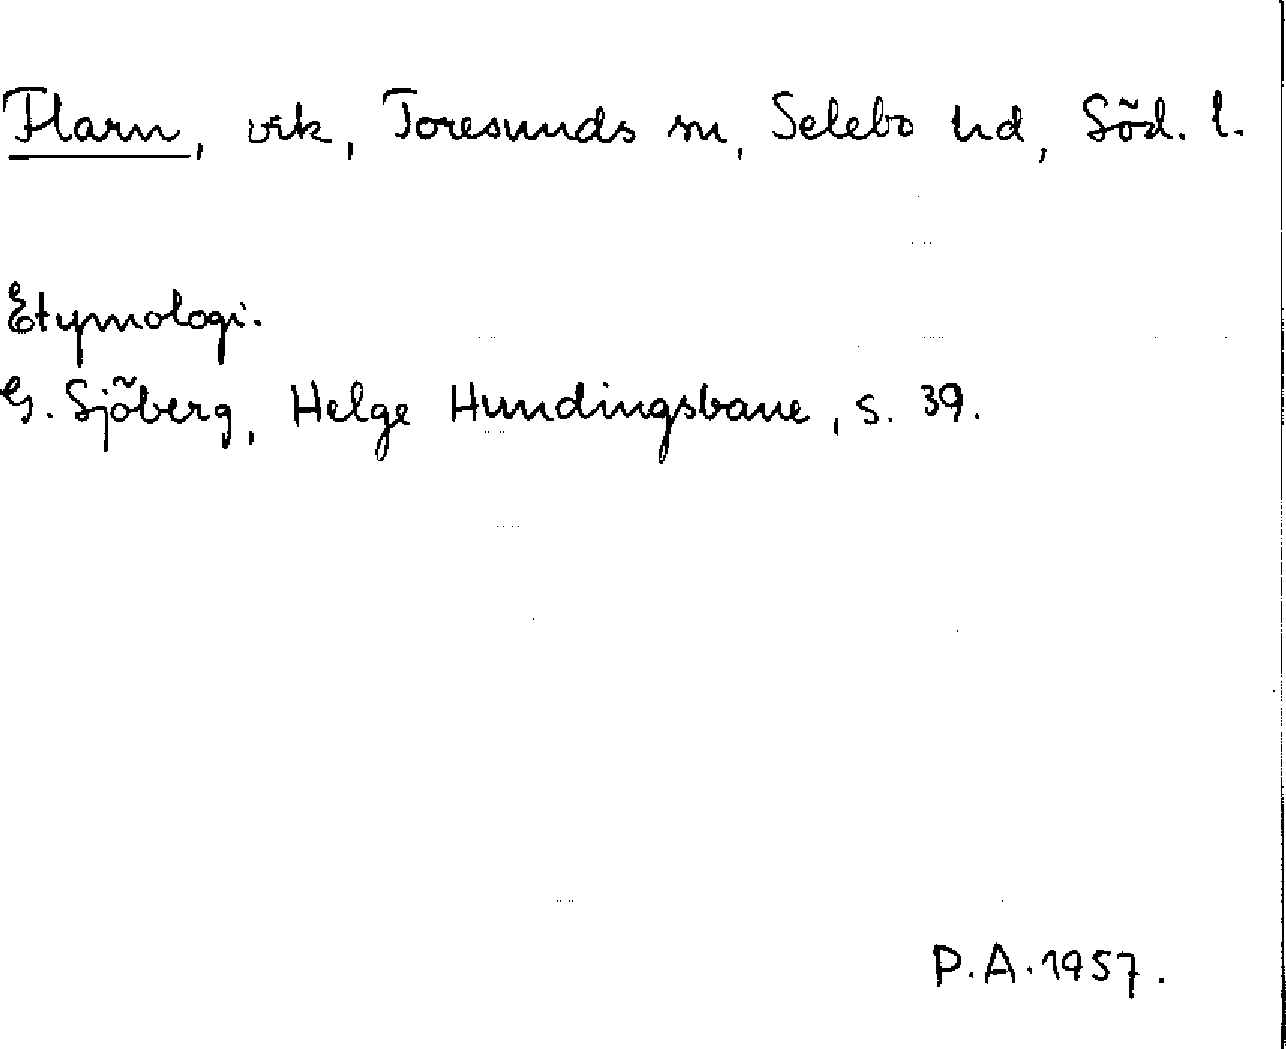 Flarn, vik, Toresunds sn, Selebo hd, Söd. l.
Etymologi.
G. Sjöberg, Helge Hundingsbane, s. 39.
P.A. 1957.